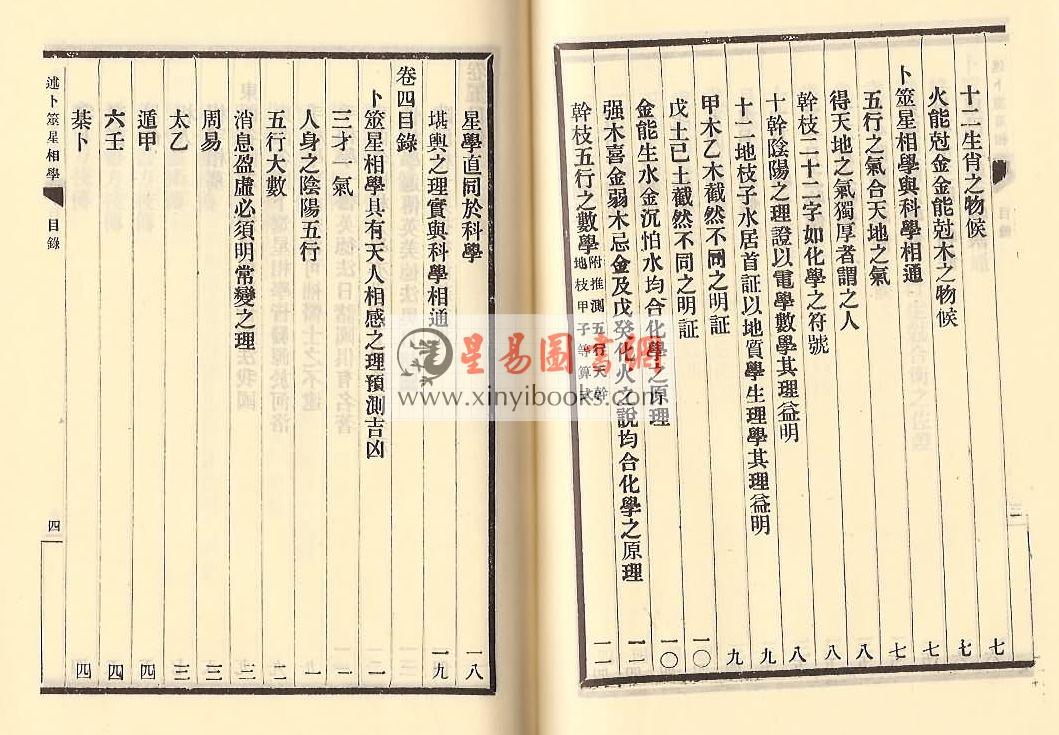 十二生肖之物候 七
火能尅金金能尅木之物候 七
卜筮星相學與科學相通 七
五行之氣合天地之氣 七
得天地之氣獨厚者謂之人 八
幹枝二十二字如化學之符號 八
十幹陰陽之理證以電學數學其理益明 八
十二地枝子水居首証以地質學生理學其理益明 九
甲木乙木截然不同之明証 九
戊土己土截然不同之明証 一〇
金能生水金沉怕水均合化學之原理 一〇
强木喜金弱木忌金及戊癸化火之說均合化學之原理 一一
幹枝五行之數學 附推測五行天幹地枝甲子等算式 一一
星學直同於科學 一八
堪輿之理實與科學相通 一九
卷四目錄
卜筮星相學具有天人相感之理預測吉凶 一
三才一氣 一
人身之陰陽五行 一
五行大數 二
消息盈虛必須明常變之理 三
周易 三
太乙 三
遁甲 四
六壬 四
棊卜 四
述卜筮星相學 目錄 四
星易圖書網
www.xinyibooks.com